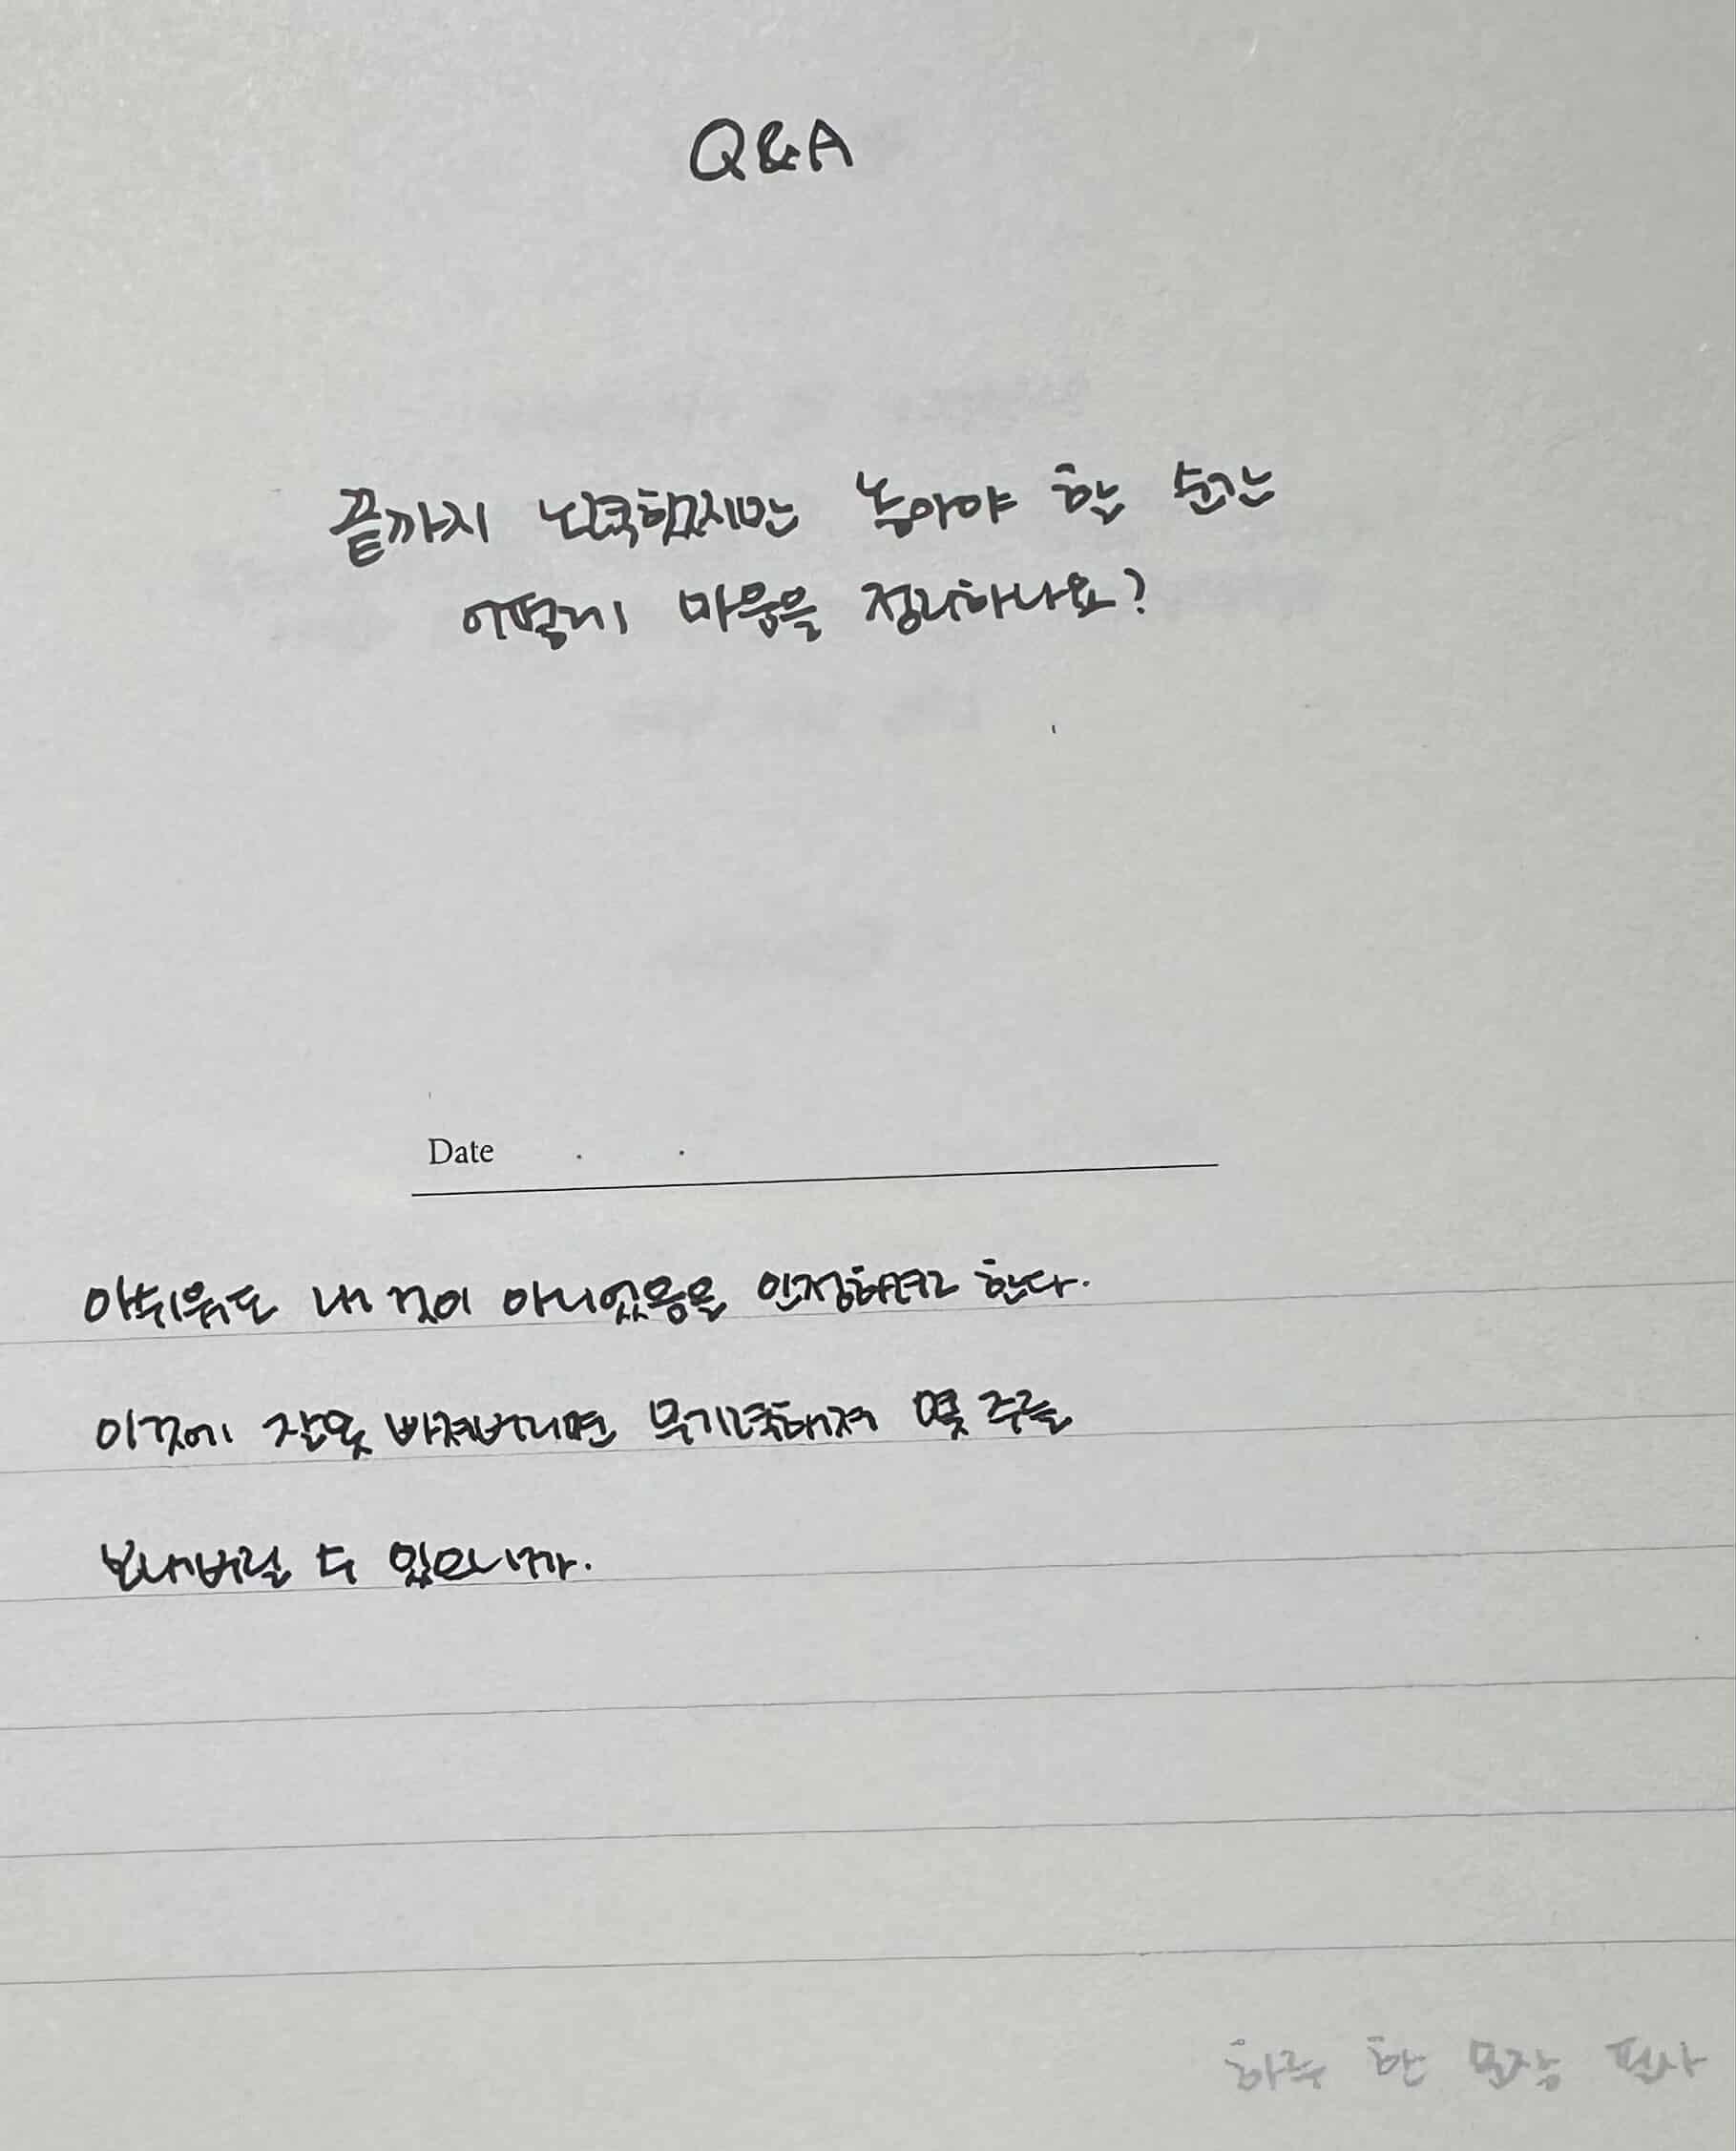 Q&A
끝까지 노력했지만 놓아야 한 순간
어떻게 마음을 정리하나요?
Date . .
아쉬워도 내 것이 아니었음을 인정하려고 한다.
이것에 잘못 빠져버리면 무기력해져 몇 주를
보내버릴 수 있으니까.
하루 한 문장 필사